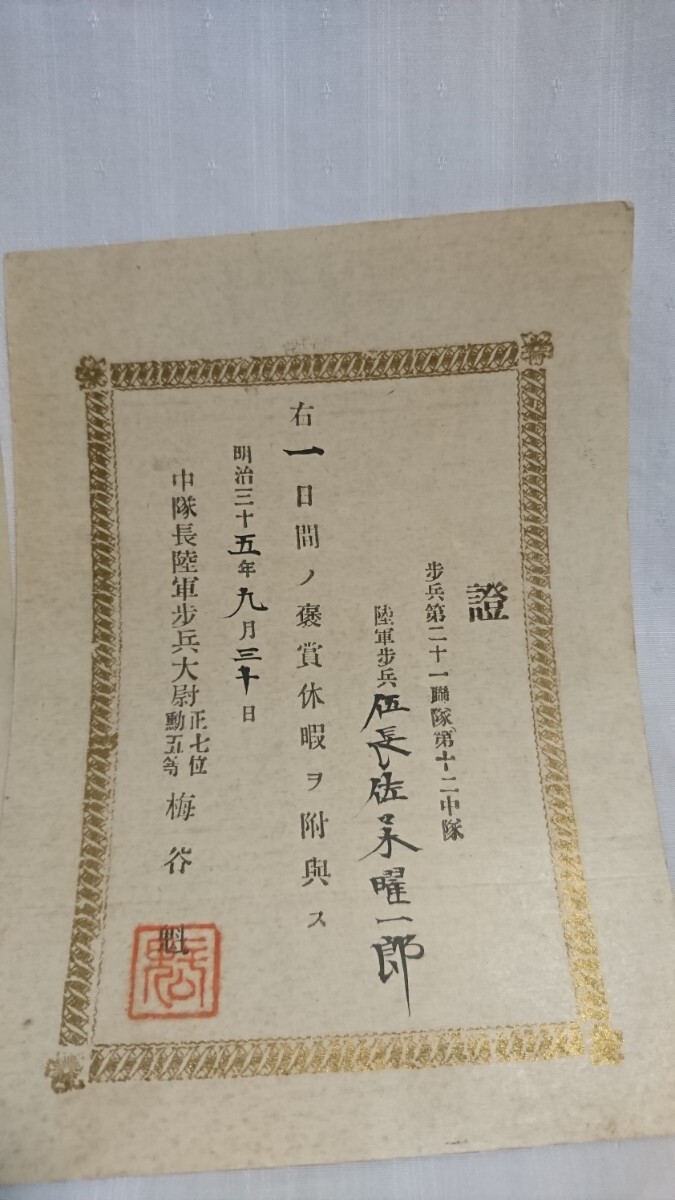 證
歩兵第二十一聯隊第十二中隊
陸軍歩兵伍長佐々木曜一郎
右一日間ノ褒賞休暇ヲ附與ス
明治三十五年九月三十日
中隊長陸軍歩兵大尉正七位勳五等梅谷魁